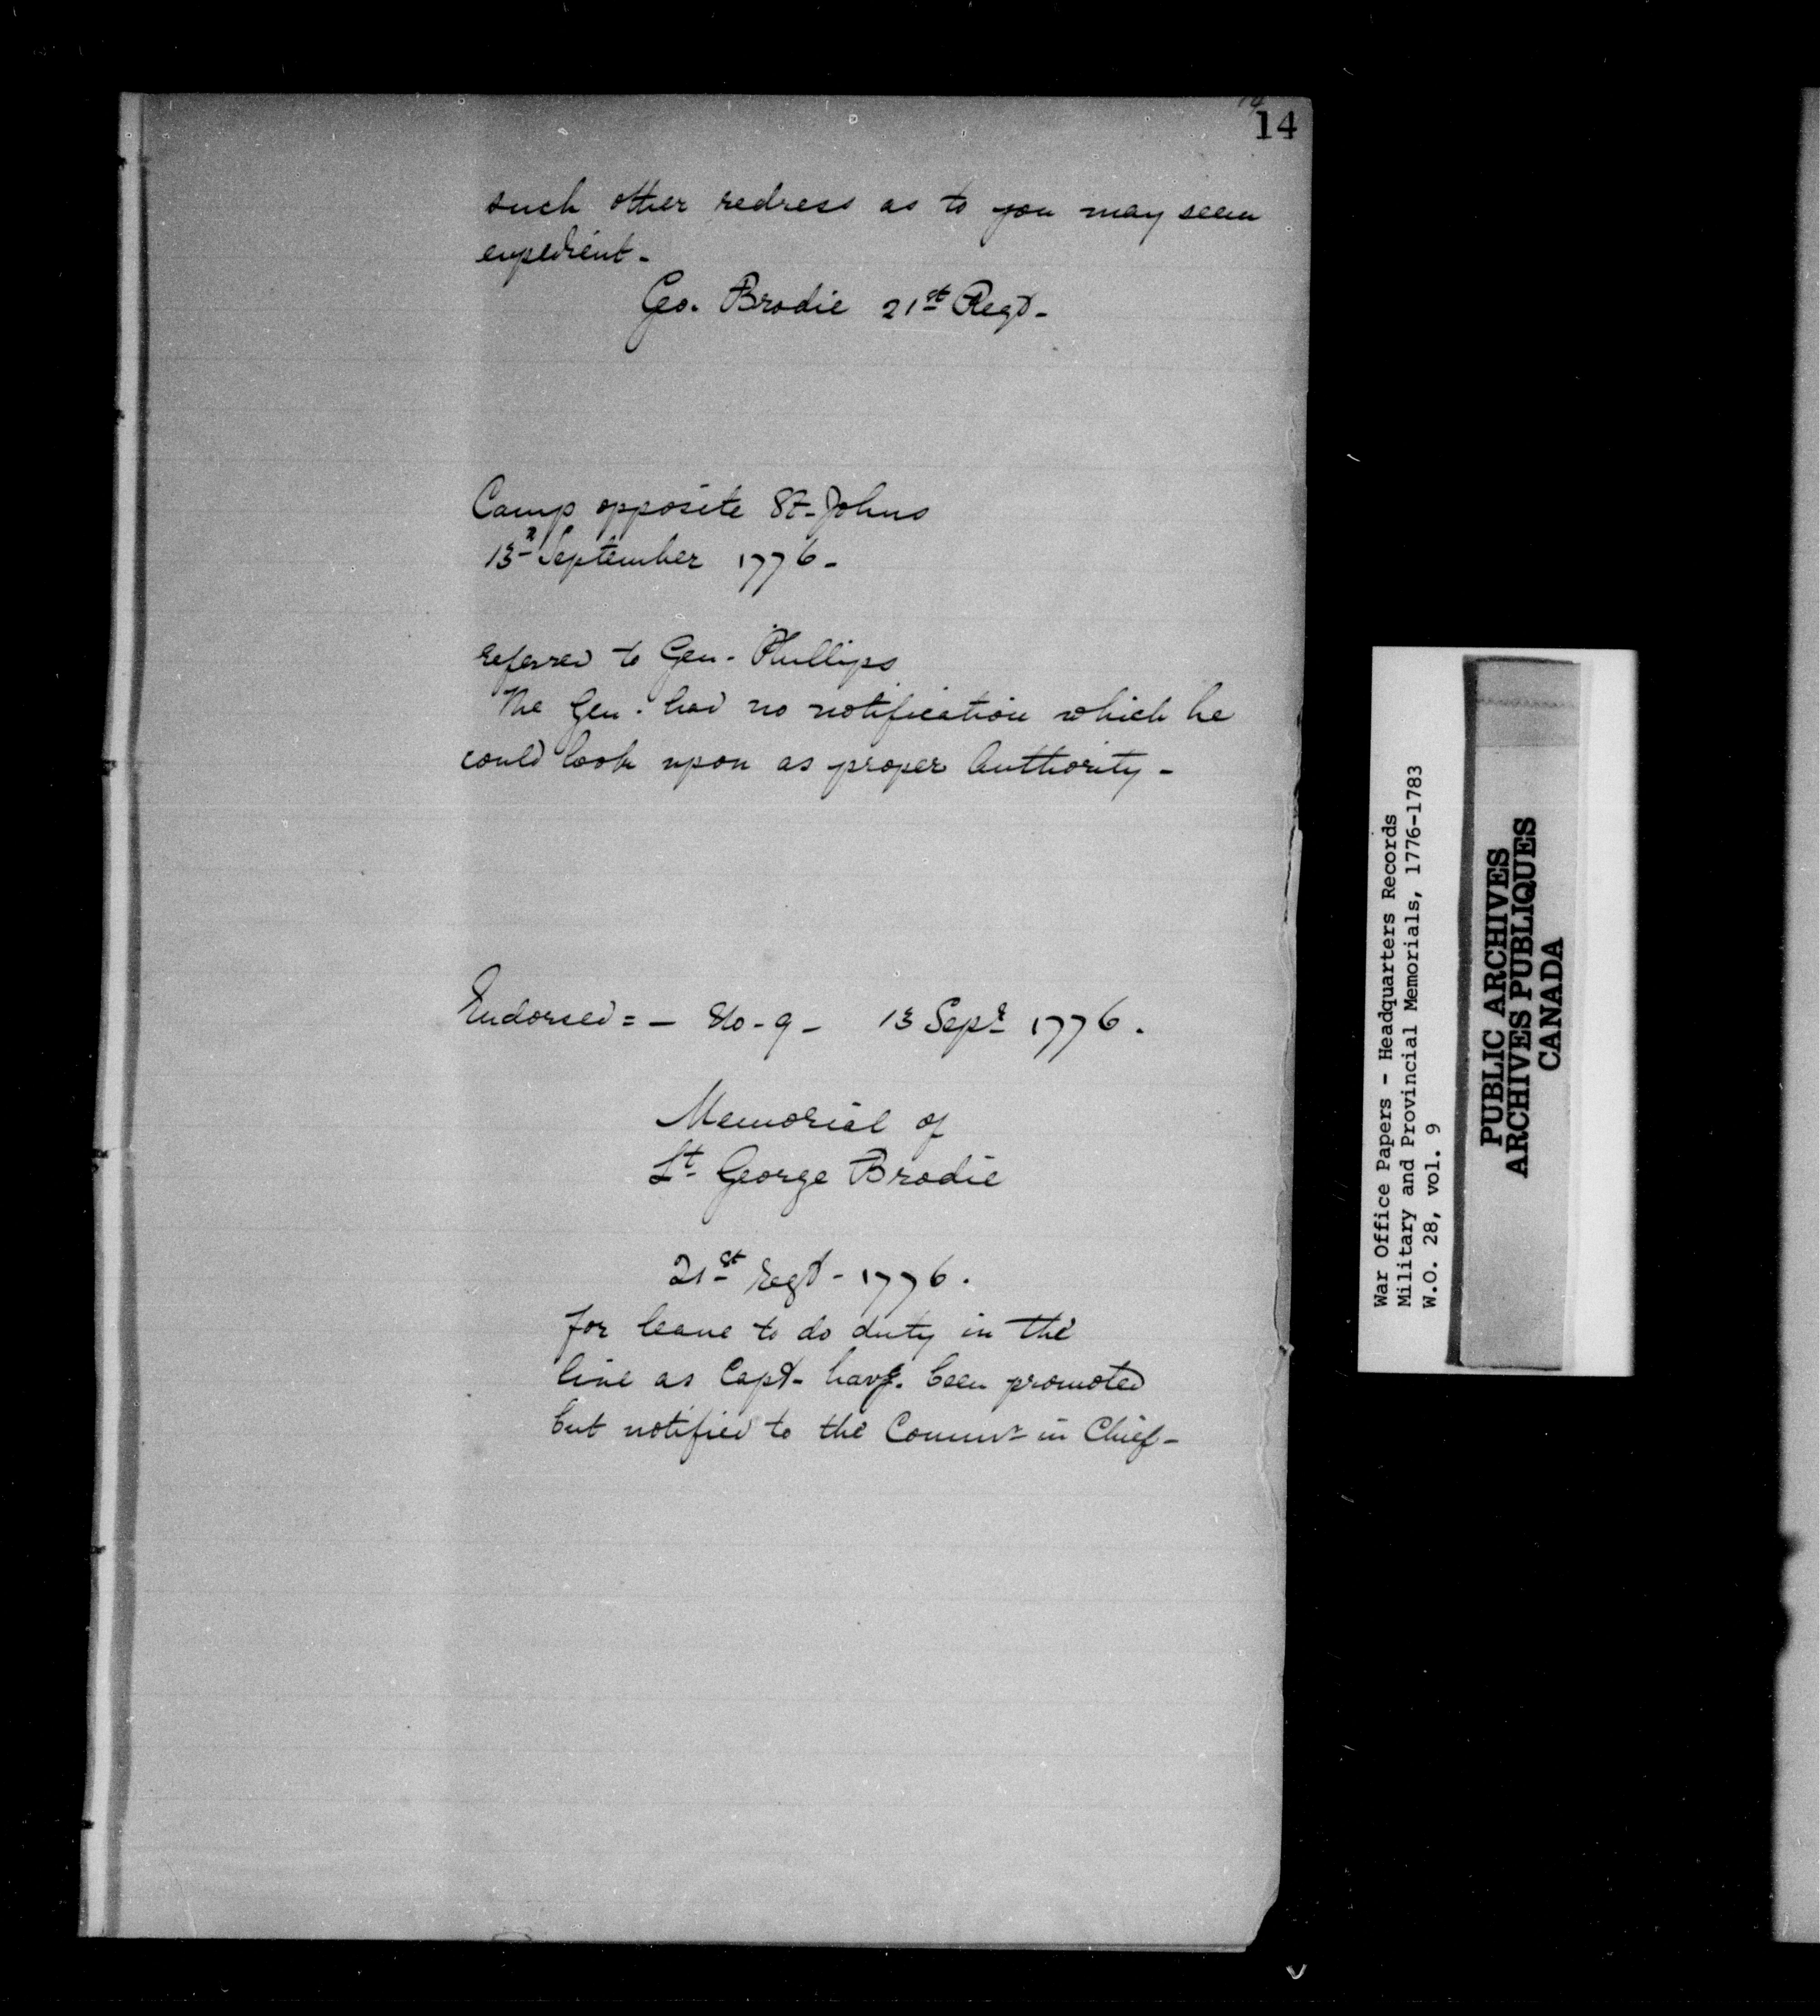 14
such other redress as to you may seem
expedient-
Geo. Brodie 21st Regt-
Camp opposite St-Johns
13th September 1776-
referred to Gen- Phillips
The Gen. had no notification which he
could look upon as proper Authority-
Endorsed=- No-9- 13 Sepr 1776.
Memorial of
Lt George Brodie
21st Regt-1776.
for leave to do duty in the
line as Capt- havg. been promoted
but notified to the Commr in Chief-
War Office Papers - Headquarters Records
Military and Provincial Memorials, 1776-1783
W.O. 28, vol. 9
PUBLIC ARCHIVES
ARCHIVES PUBLIQUES
CANADA